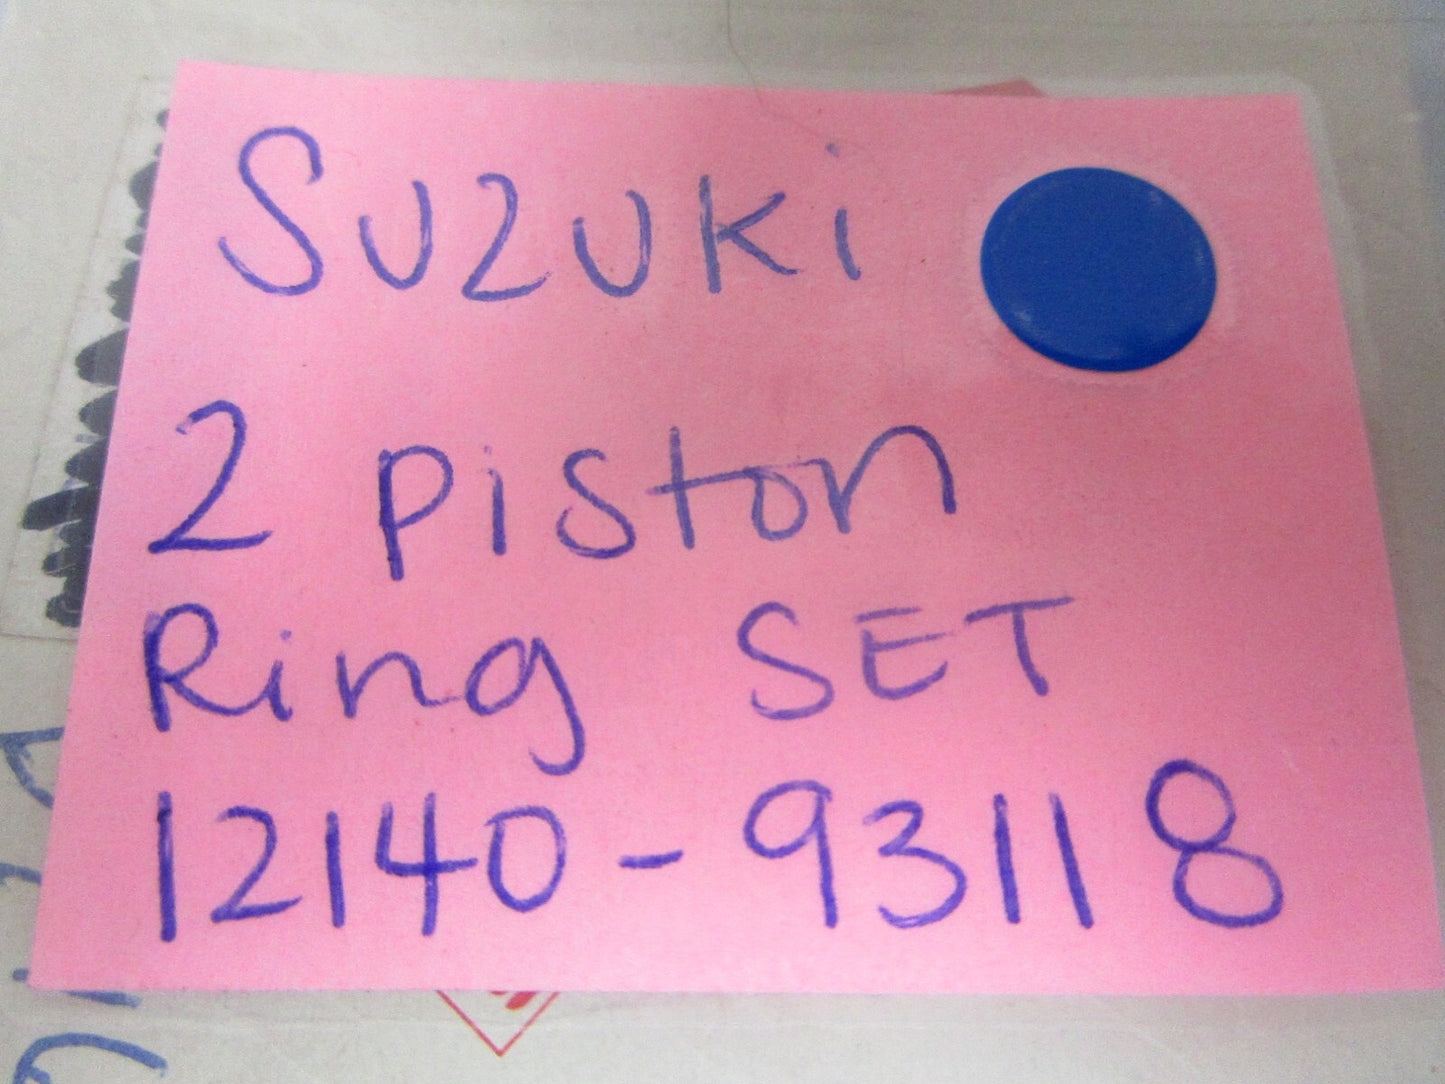 Suzuki
2 Piston
Ring SET
12140-93118